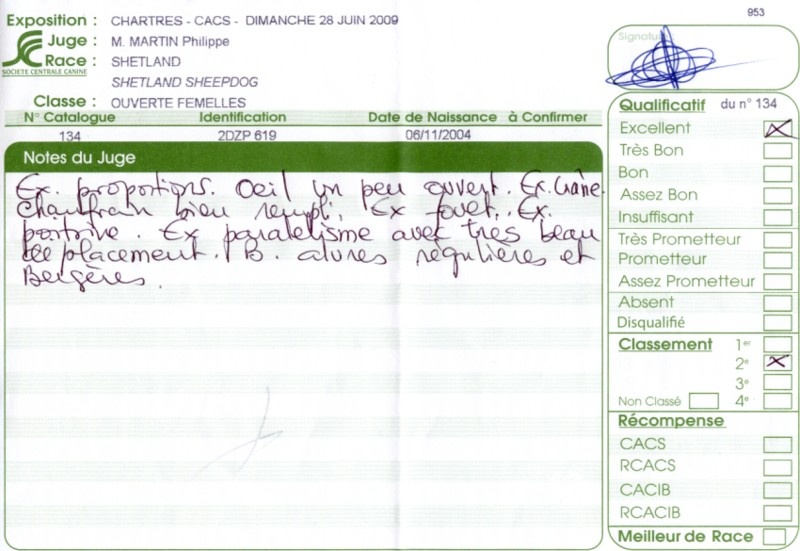 953
Exposition : CHARTRES - CACS - DIMANCHE 28 JUIN 2009
Juge : M. MARTIN Philippe
Race : SHETLAND
SOCIETE CENTRALE CANINE
SHETLAND SHEEPDOG
Classe : OUVERTE FEMELLES
N° Catalogue Identification Date de Naissance à Confirmer
134 2DZP 619 06/11/2004
Notes du Juge
Ex. proportions. Oeil un peu ouvert. Ex. Crâne.
Chanfrain bien rempli. Ex fouet. Ex.
poitrine. Ex paralelisme avec très beau
déplacement. TB. alures régulières et
Bergères.
Signature
Qualificatif du n° 134
Excellent X
Très Bon
Bon
Assez Bon
Insuffisant
Très Prometteur
Prometteur
Assez Prometteur
Absent
Disqualifié
Classement 1er
2e X
3e
Non Classé 4e
Récompense
CACS
RCACS
CACIB
RCACIB
Meilleur de Race